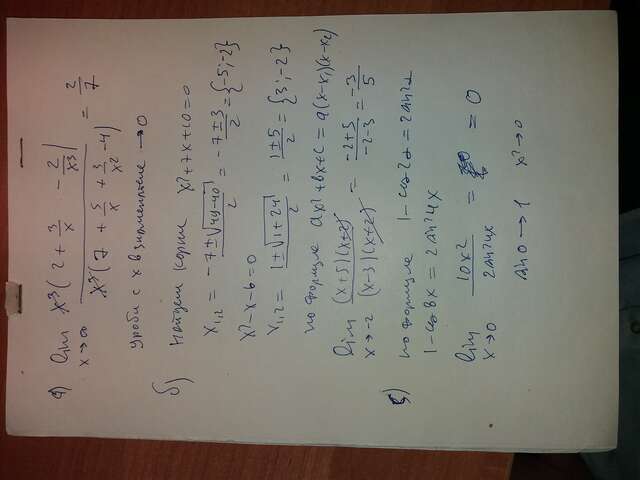 а) lim x→∞ x³(2 + 3/x - 2/x³) / x³(7 + 5/x + 3/x² - 4) = 2/7
дроби с x в знаменателе → 0
б) Найдем корни x² + 7x + 10 = 0
x₁,₂ = (-7 ± √(49-40))/2 = (-7 ± 3)/2 = {-5; -2}
x² - x - 6 = 0
x₁,₂ = (1 ± √(1+24))/2 = (1 ± 5)/2 = {3; -2}
по формуле ax² + bx + c = a(x-x₁)(x-x₂)
lim x→-2 (x+5)(x+2) / (x-3)(x+2) = (-2+5)/(-2-3) = -3/5
по формуле 1 - cos2α = 2sin²α
1 - cos8x = 2sin²4x
lim x→0 10x² / 2sin²4x = = 0
sin0 → 1 x² → 0